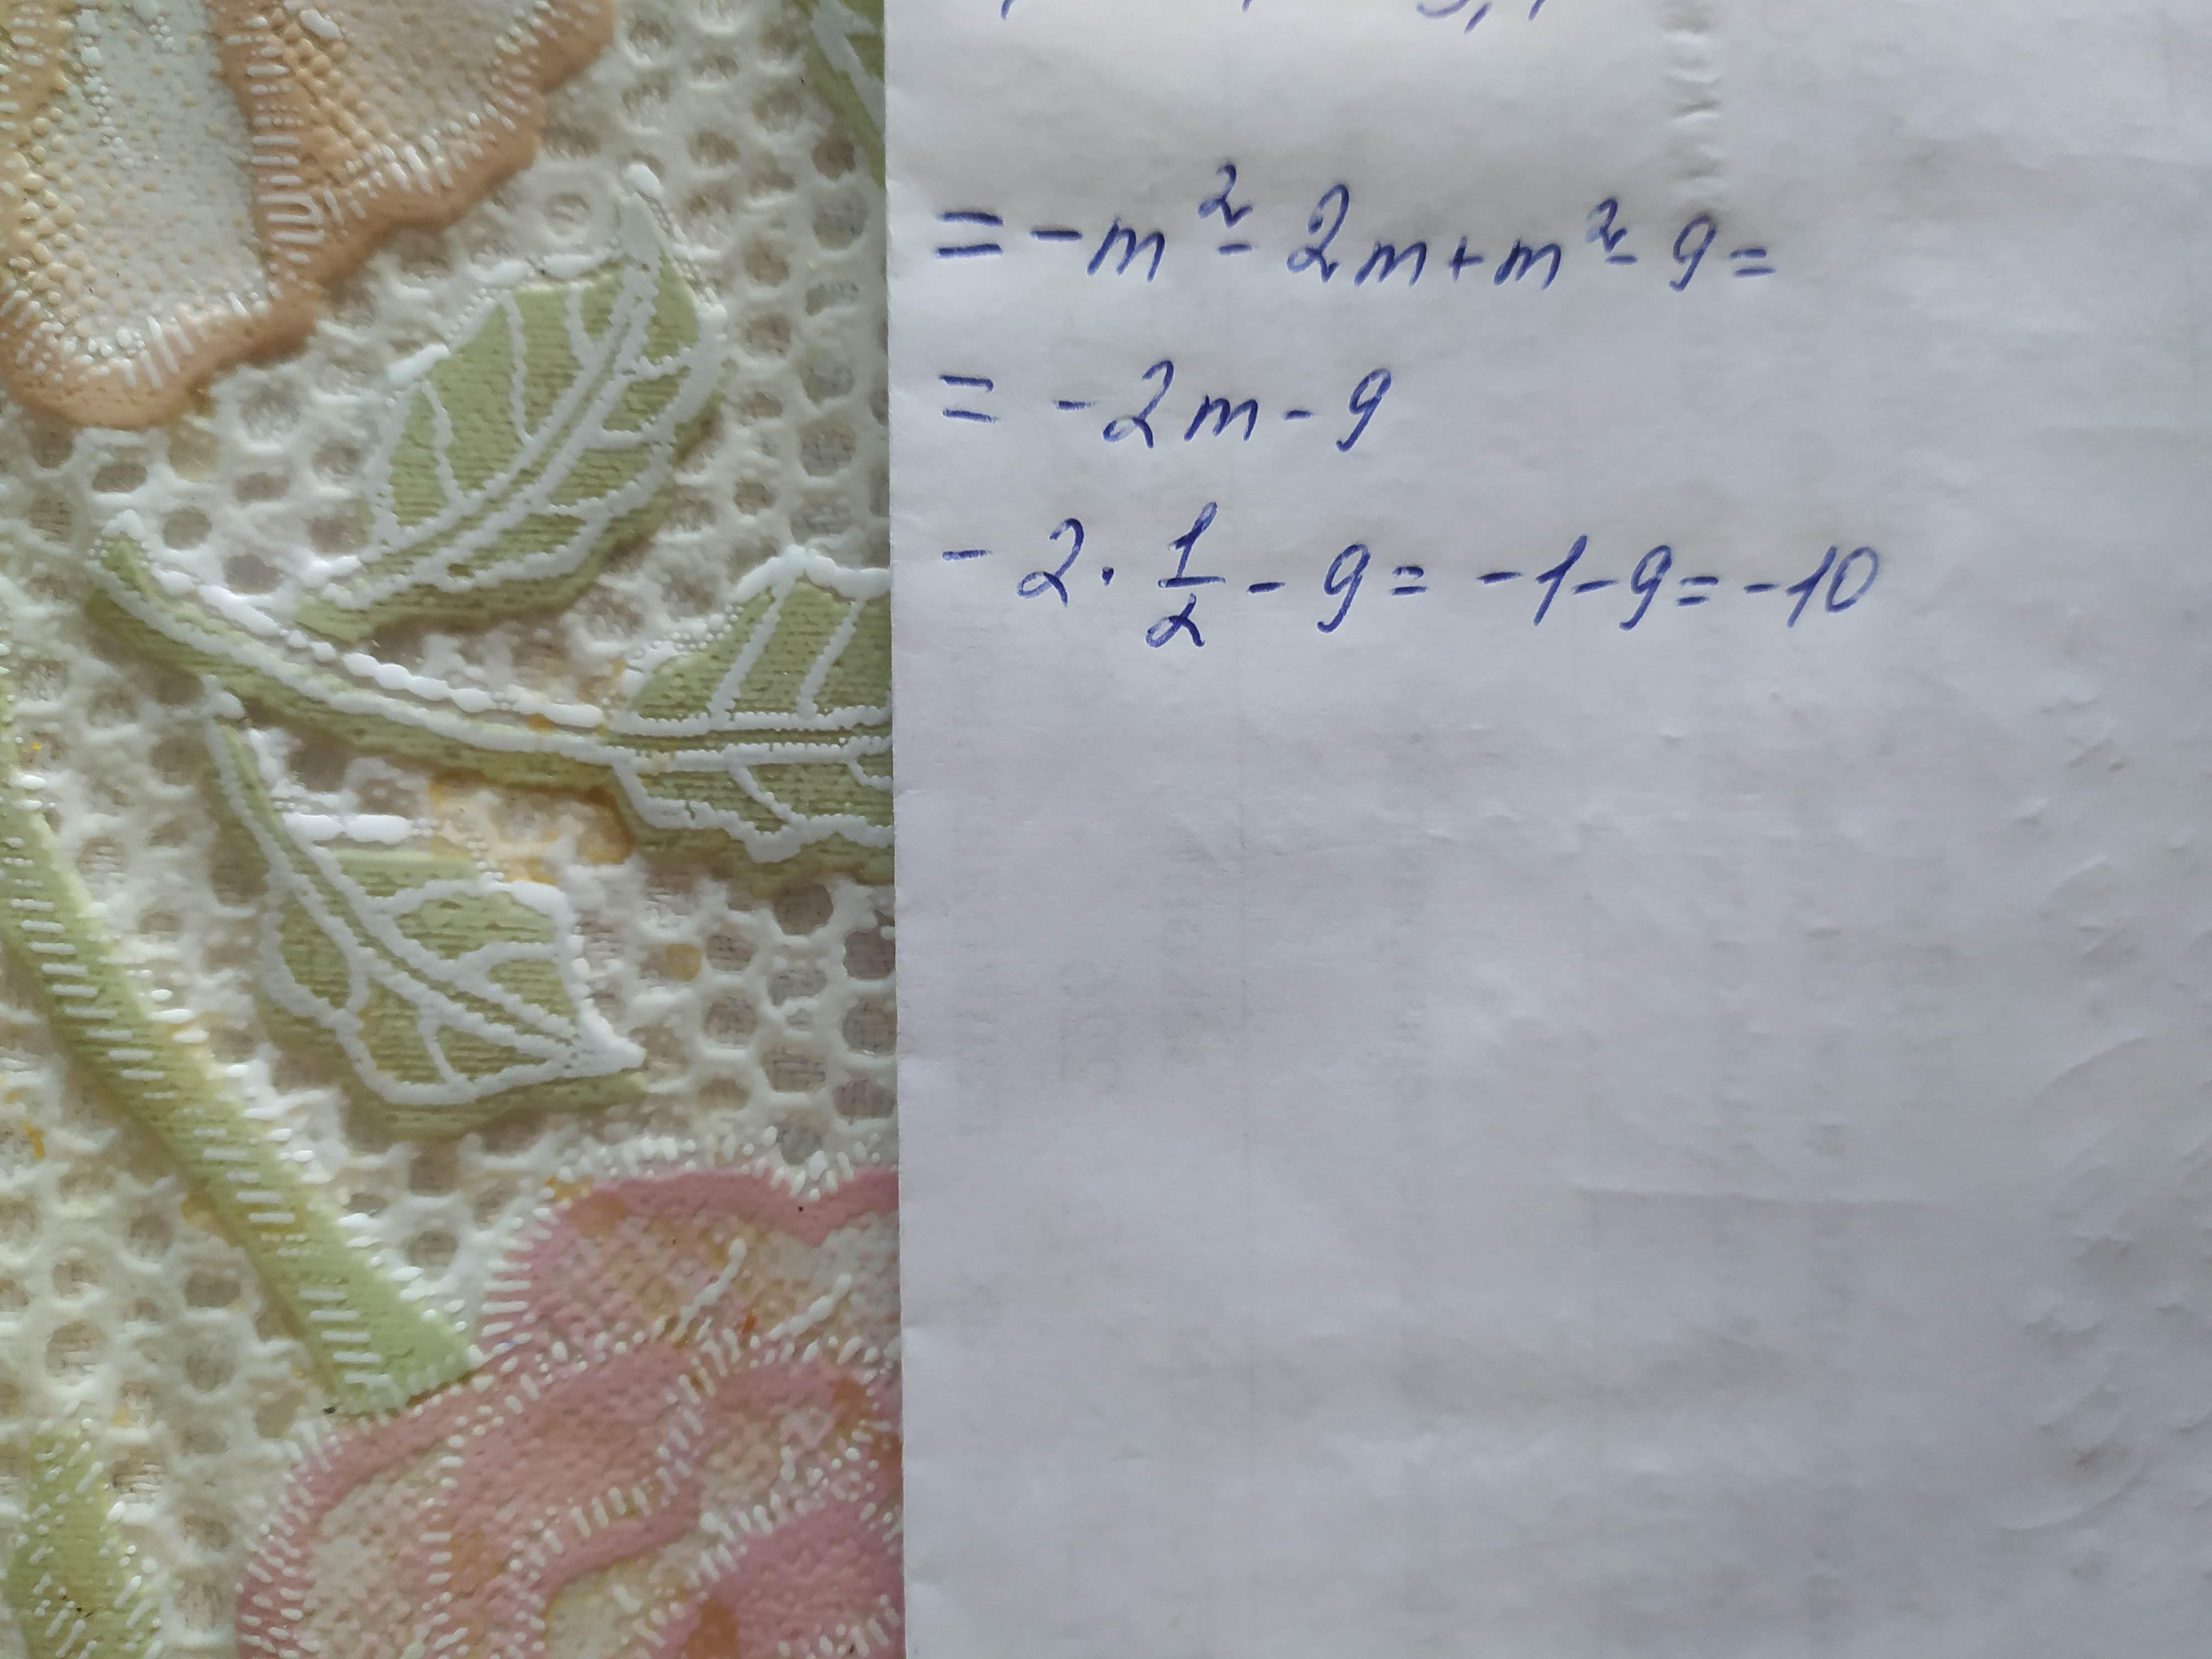 = -m² - 2m + m² - 9 =
= -2m - 9
-2 · 1/2 - 9 = -1 - 9 = -10